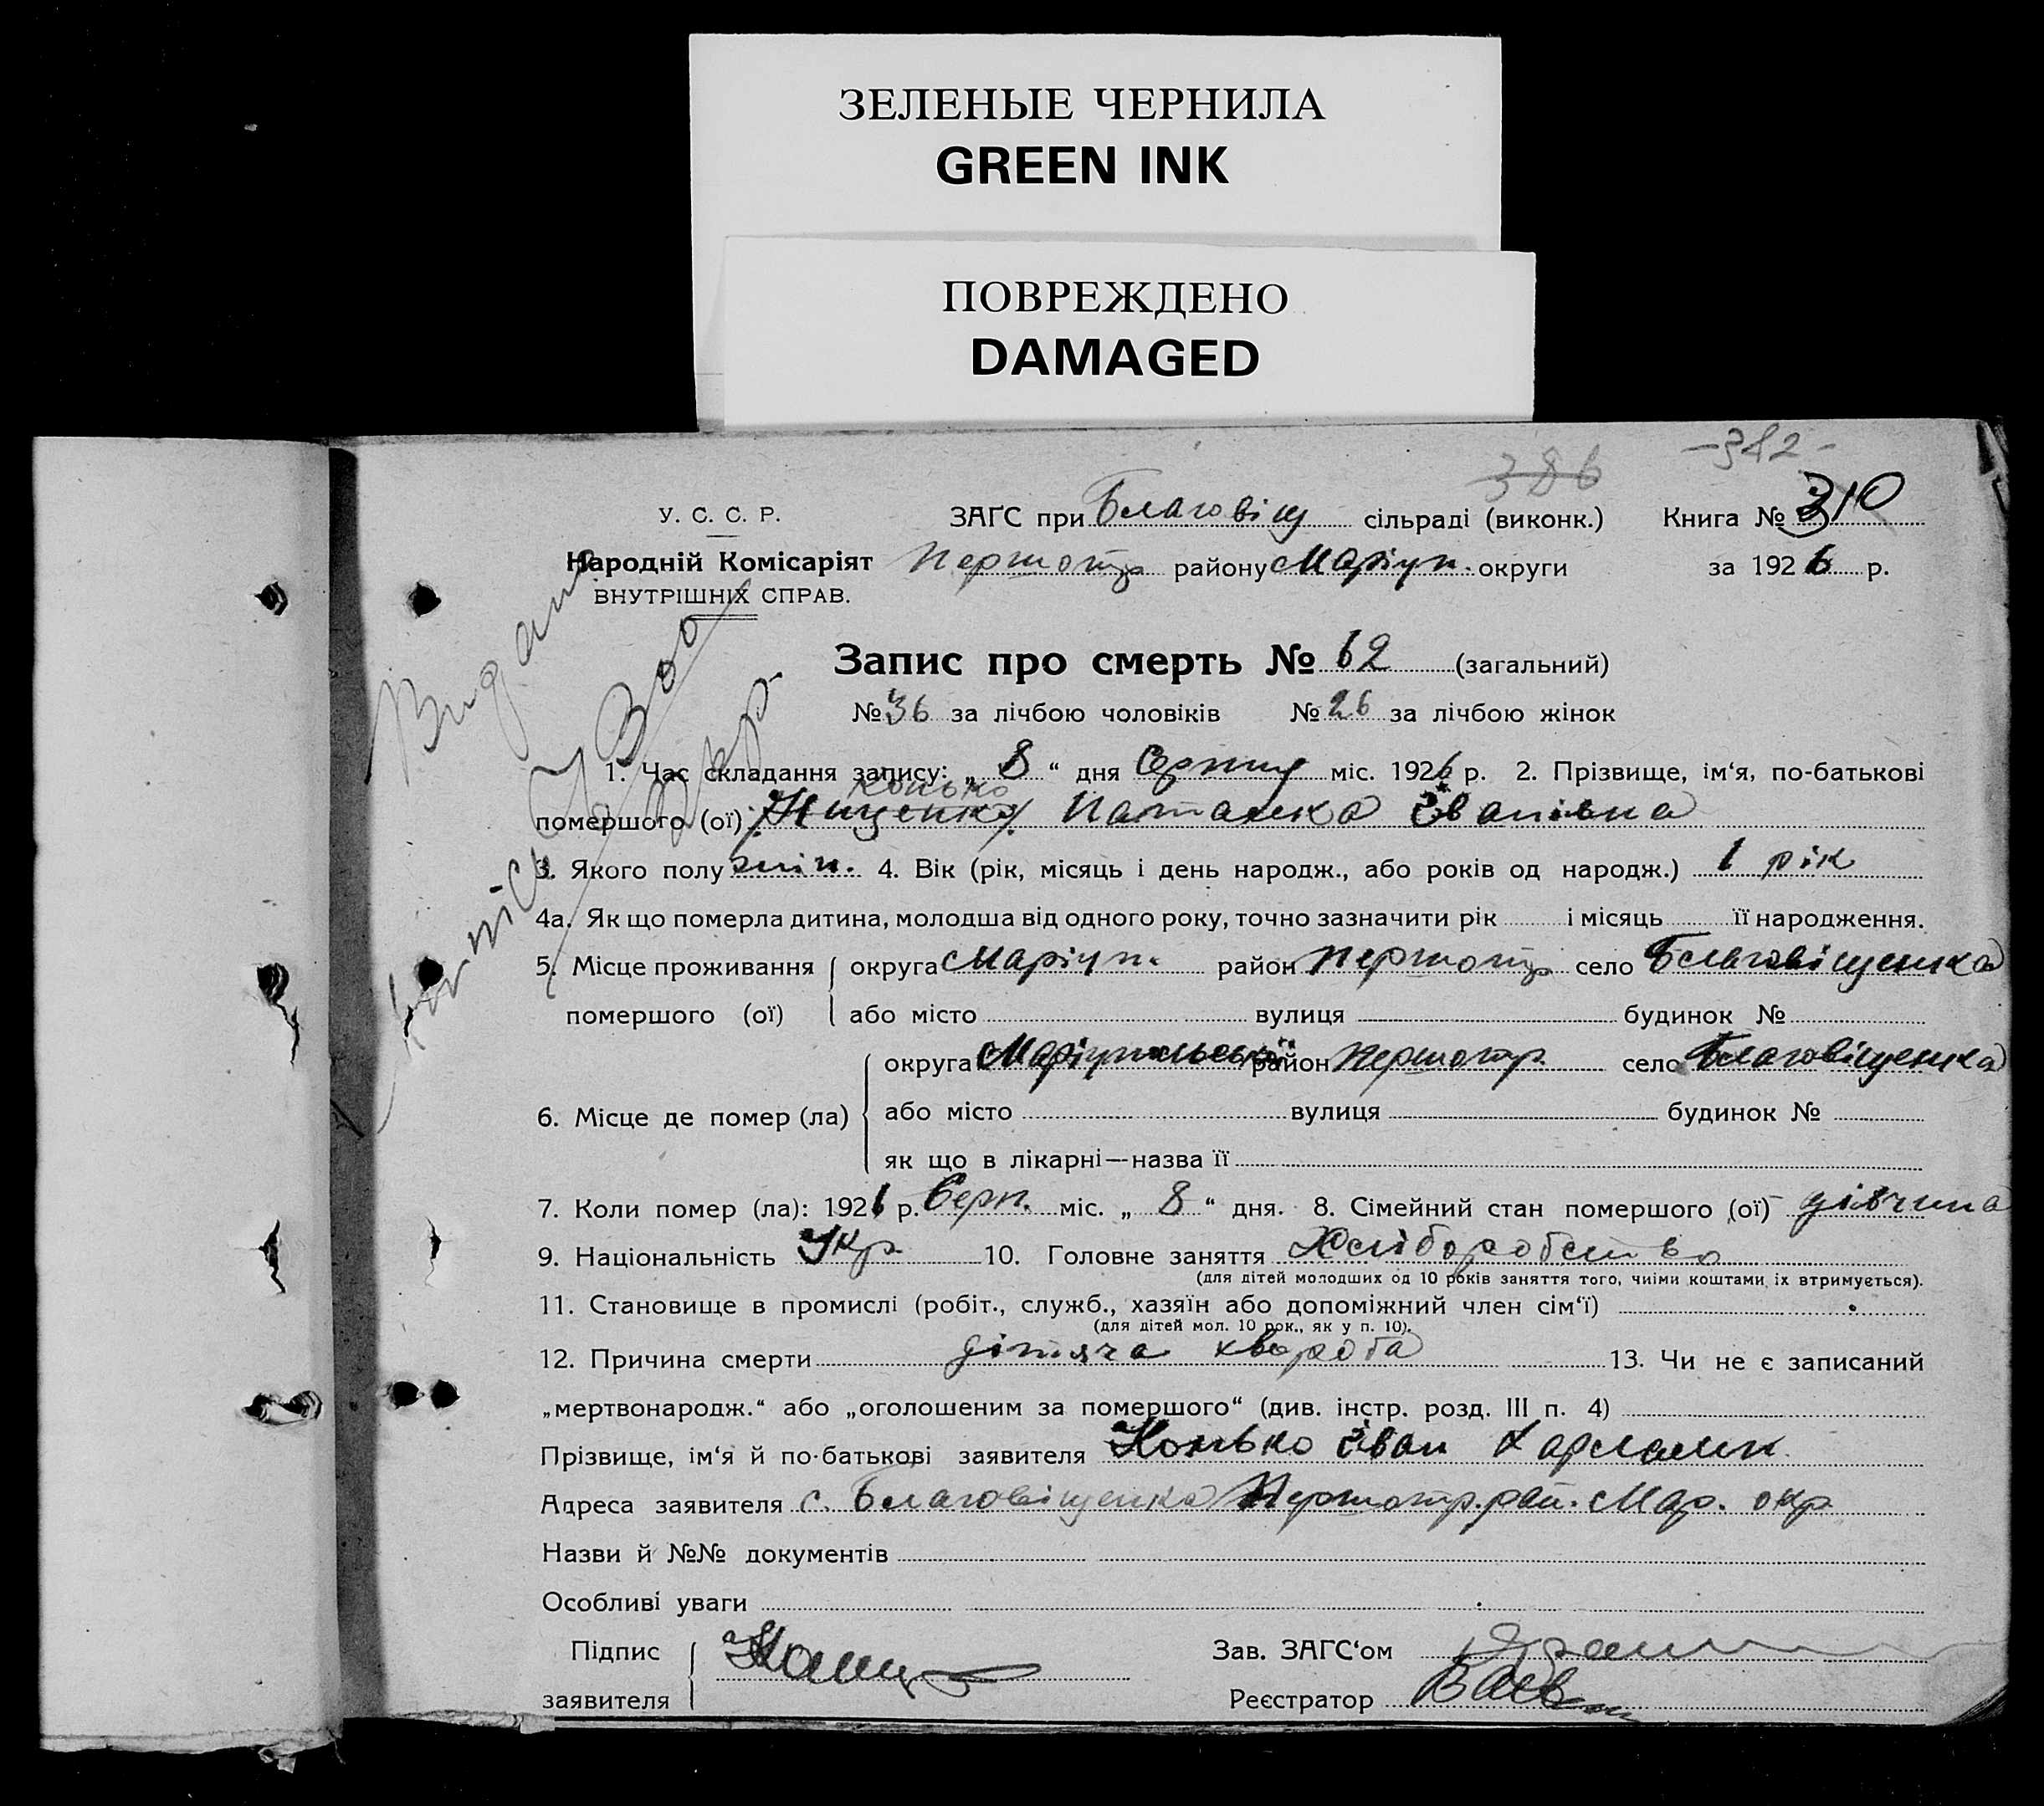 ЗЕЛЕНЫЕ ЧЕРНИЛА
GREEN INK
ПОВРЕЖДЕНО
DAMAGED
386 -312-
У. С. С. Р. ЗАҐС при Благовіщ сільраді (виконк.) Книга № 310
Народній Комісаріят Першотр району Маріуп. округи за 1926 р.
ВНУТРІШНІХ СПРАВ.
Видана
Запис про смерть № 62 (загальний)
№ 36 за лічбою чоловіків № 26 за лічбою жінок
1. Час складання запису: „ 8 “ дня Серпня міс. 1926 р. 2. Прізвище, ім‘я, по-батькові
Конько
помершого (ої) Наталка Іванівна
3. Якого полу жін. 4. Вік (рік, місяць і день народж., або років од народж.) 1 рік
4а. Як що померла дитина, молодша від одного року, точно зазначити рік і місяць її народження.
5. Місце проживання округа Маріуп. район Першотр село Благовіщенка
помершого (ої) або місто вулиця будинок №
округа Маріупольської район Першотр. село Благовіщенка
6. Місце де помер (ла) або місто вулиця будинок №
як що в лікарні—назва її
7. Коли помер (ла): 1926 р. Серп. міс. „ 8 “ дня. 8. Сімейний стан помершого (ої) дівчина
9. Національність Укр 10. Головне заняття Хліборобство
(для дітей молодших од 10 років заняття того, чиїми коштами їх втримується).
11. Становище в промислі (робіт., служб., хазяїн або допоміжний член сім‘ї)
(для дітей мол. 10 рок., як у п. 10).
12. Причина смерти дітяча хвороба 13. Чи не є записаний
„мертвонародж.“ або „оголошеним за помершого“ (див. інстр. розд. III п. 4)
Прізвище, ім‘я й по-батькові заявителя Конько Іван Харламп.
Адреса заявителя с. Благовіщенка Першотр. рай. Мар. окр.
Назви й №№ документів
Особливі уваги
Підпис Зав. ЗАҐС‘ом
заявителя Реєстратор